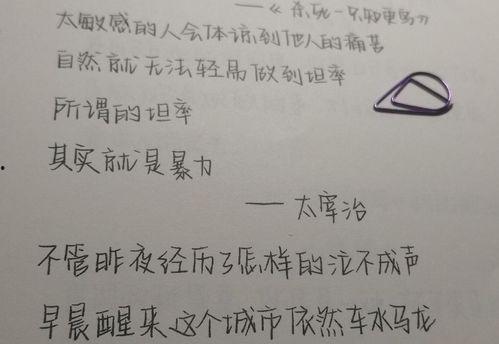 ——《杀死一只知更鸟》
太敏感的人会体谅到他人的痛苦
自然就无法轻易做到坦率
所谓的坦率
其实就是暴力
——太宰治
不管昨夜经历了怎样的泣不成声
早晨醒来这个城市依然车水马龙